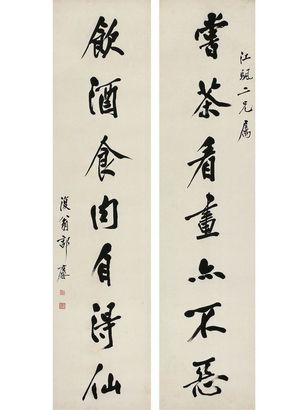 江二兄屬
嘗茶看畫亦不惡
飲酒食肉自得仙
復翁郭麐